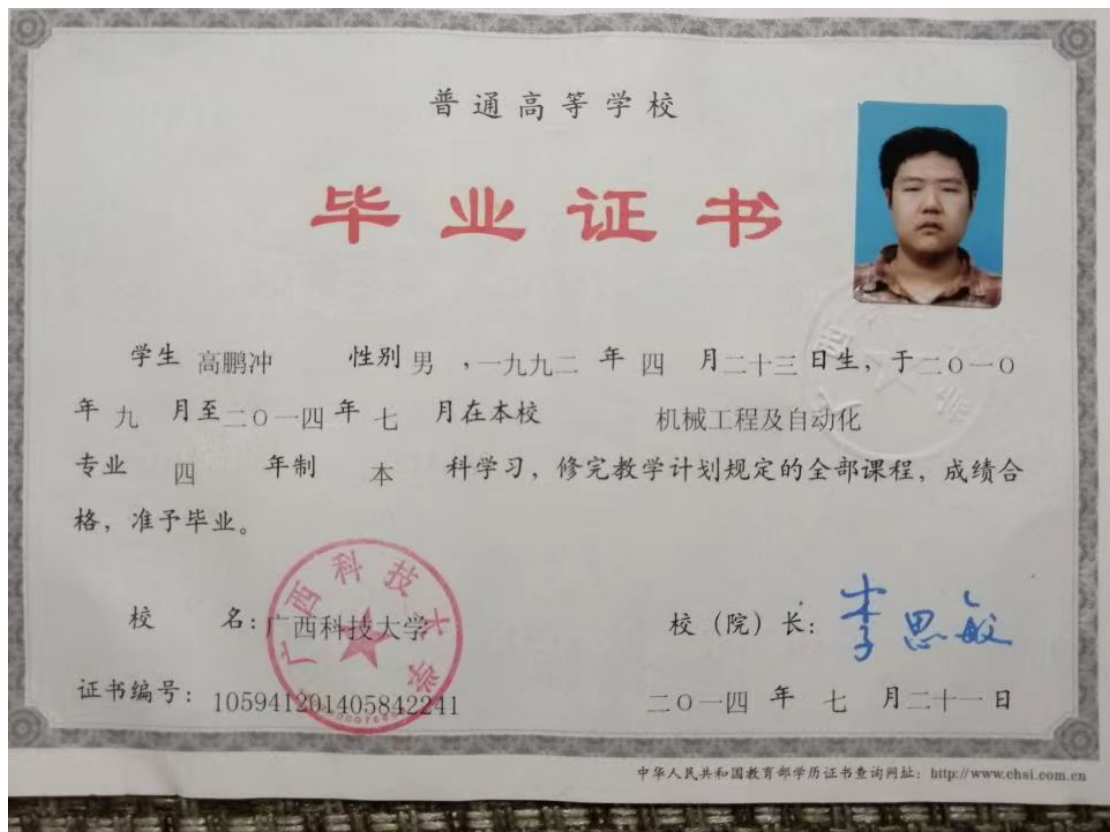 普通高等学校
毕业证书
学生 高鹏冲 性别 男 ，一九九二 年 四 月二十三日生，于二〇一〇
年 九 月至二〇一四年 七 月在本校 机械工程及自动化
专业 四 年制 本 科学习，修完教学计划规定的全部课程，成绩合
格，准予毕业。
广西科技大学
校 名：广西科技大学 校（院）长：李思敏
证书编号：105941201405842241 二〇一四 年 七 月二十一日
中华人民共和国教育部学历证书查询网址：http://www.chsi.com.cn